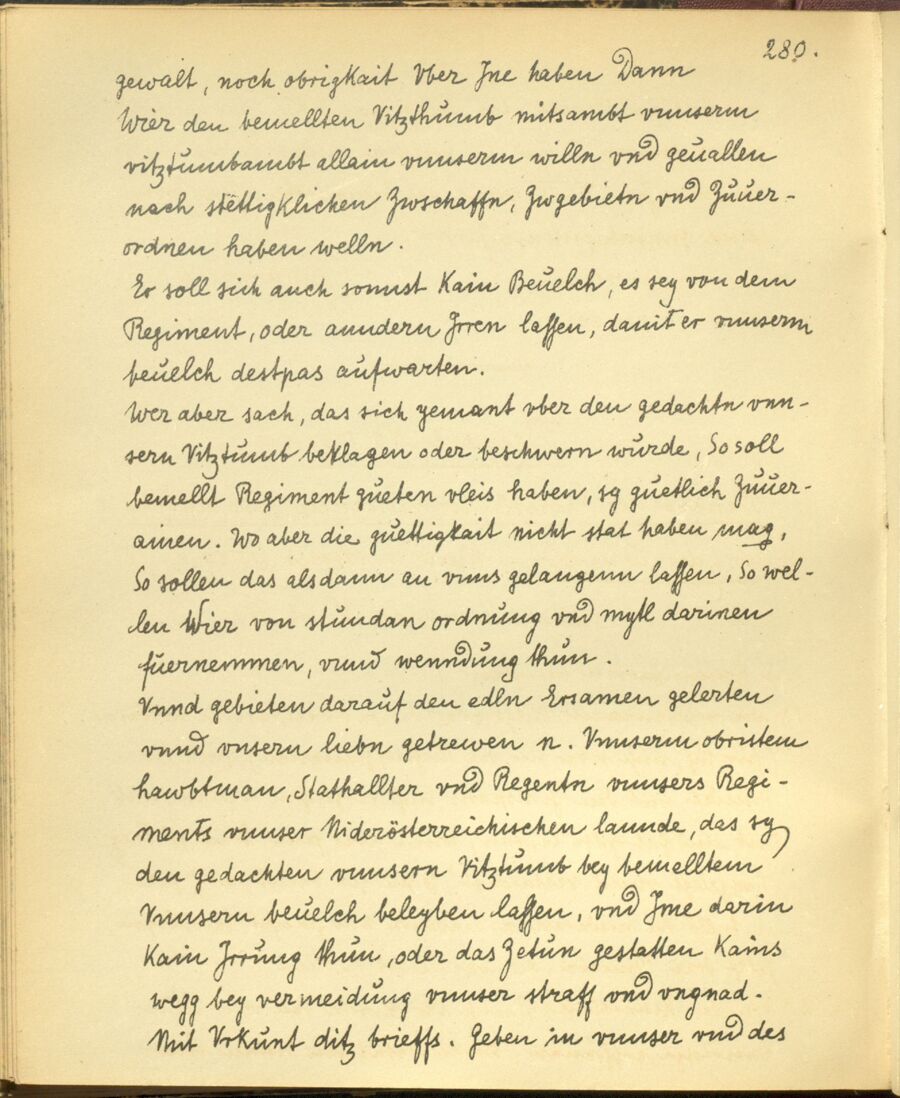 280.
gewalt, noch obrigkait Vber Jne haben Dann
Wier den bemellten Vitzthumb mitsambt vnnserm
vitztumbambt allain vnnserm willn vnd geuallen
nach stëttigklichen Zwschaffn, Zwgebietn vnd Zuuer-
ordnen haben welln.
Er soll sich auch sonnst Kain Beuelch, es sey von dem
Regiment, oder anndern Jrren lassen, damit er vnnserm
beuelch destpas aufwarten.
Wer aber sach, das sich yemant vber den gedachtn vnn-
sern Vitztumb beklagen oder beschwern wurde, So soll
bemellt Regiment gueten vleis haben, sy guetlich Zuuer-
ainen. Wo aber die guettigkait nicht stat haben mag,
So sollen das alsdann an vnns gelangenn lassen, So wel-
len Wier von stundan ordnung vnd mytl darinen
fuernemmen, vnnd wenndung thun.
Vnnd gebieten darauf den edln Ersamen gelerten
vnnd vnsern liebn getrewen n. Vnnserm obristem
hawbtman, Stathallter vnd Regentn vnnsers Regi-
ments vnnser Niderösterreichischen lannde, das sy
den gedachten vnnsern Vitztumb bey bemelltem
Vnnserm beuelch beleyben lassen, vnd Jme darin
Kain Jrrung thun, oder das Zetun gestatten Kains
wegg bey vermeidung vnnser straff vnd vngnad.
Mit Vrkunt ditz brieffs. Geben in vnnser vnd des